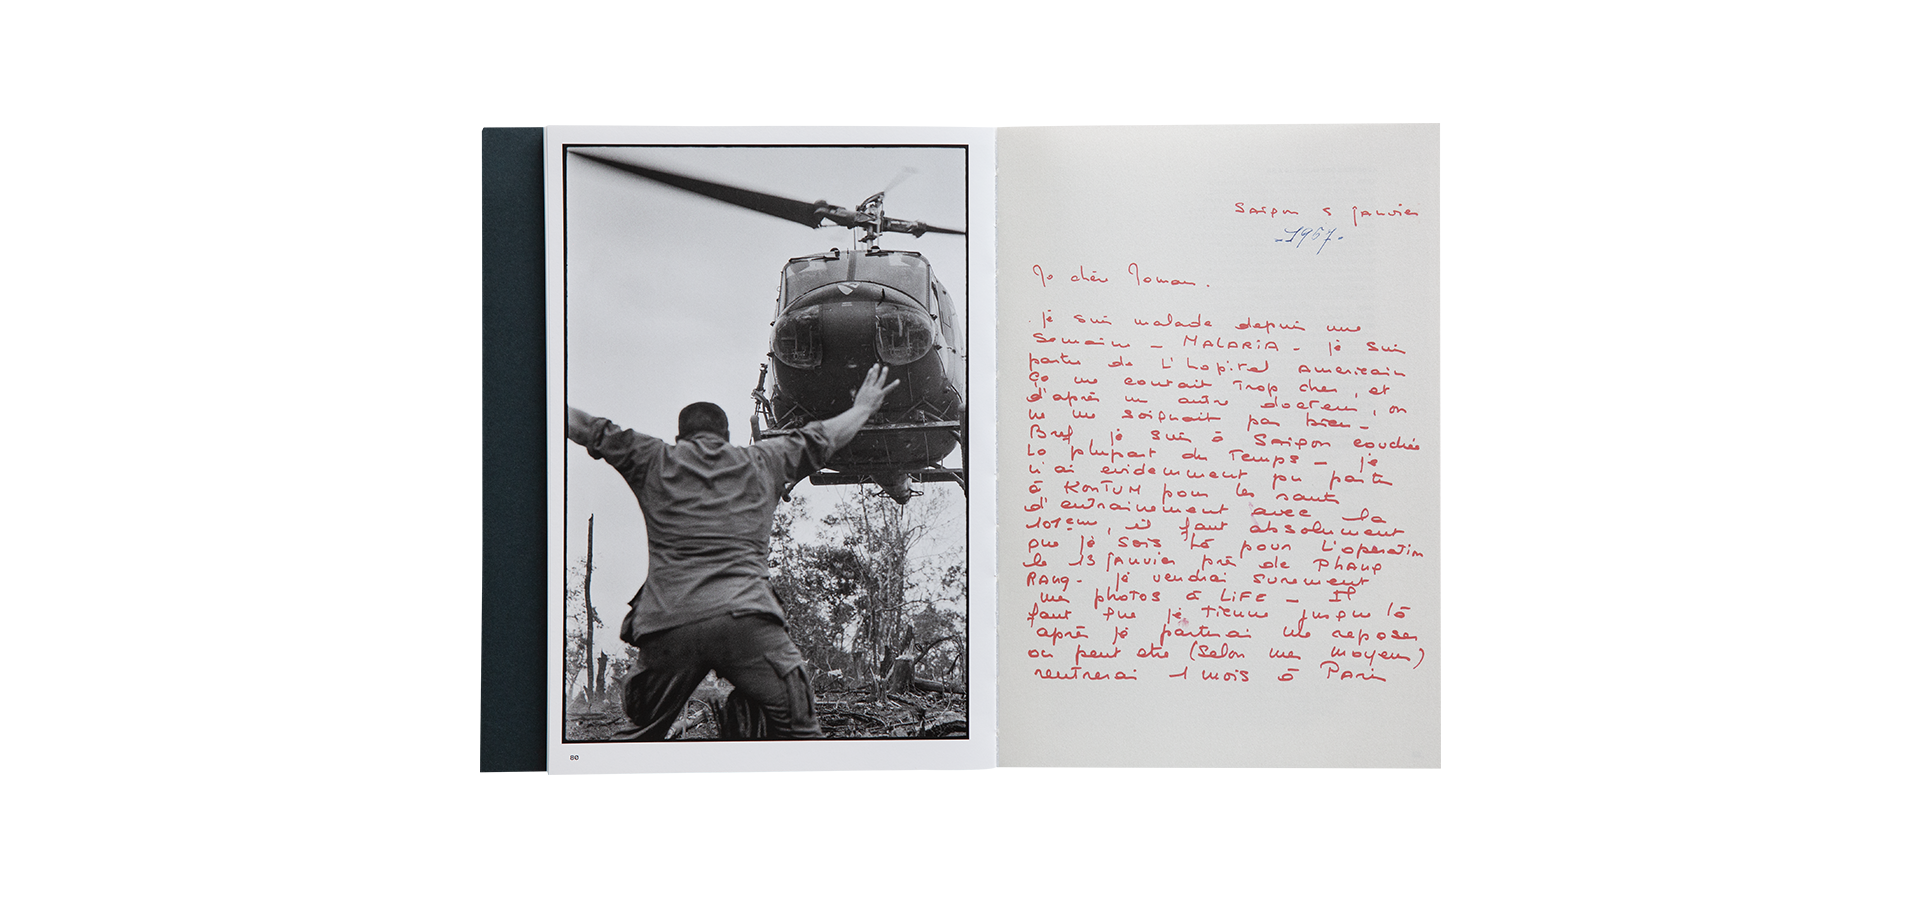 80
Saigon 5 janvier
-1967-
Ma chère Maman.
je suis malade depuis une
semaine - MALARIA - je suis
partie de L'hopital americain
ça me coutait Trop cher, et
d'après un autre docteur, on
ne me soignait pas bien -
Bref je suis à Saigon couchée
La plupart du Temps - je
n'ai evidemment pu partir
à KonTUM pour les sauts
d'entrainement avec la
101eme, il faut absolument
que je sois là pour L'operation
le 13 janvier près de PHang
RAng - je vendrai surement
mes photos à LiFE - Il
faut que je Tienne jusque là
après je partirai me reposer
ou peut etre (selon mes moyens)
rentrerai 1 mois à Paris